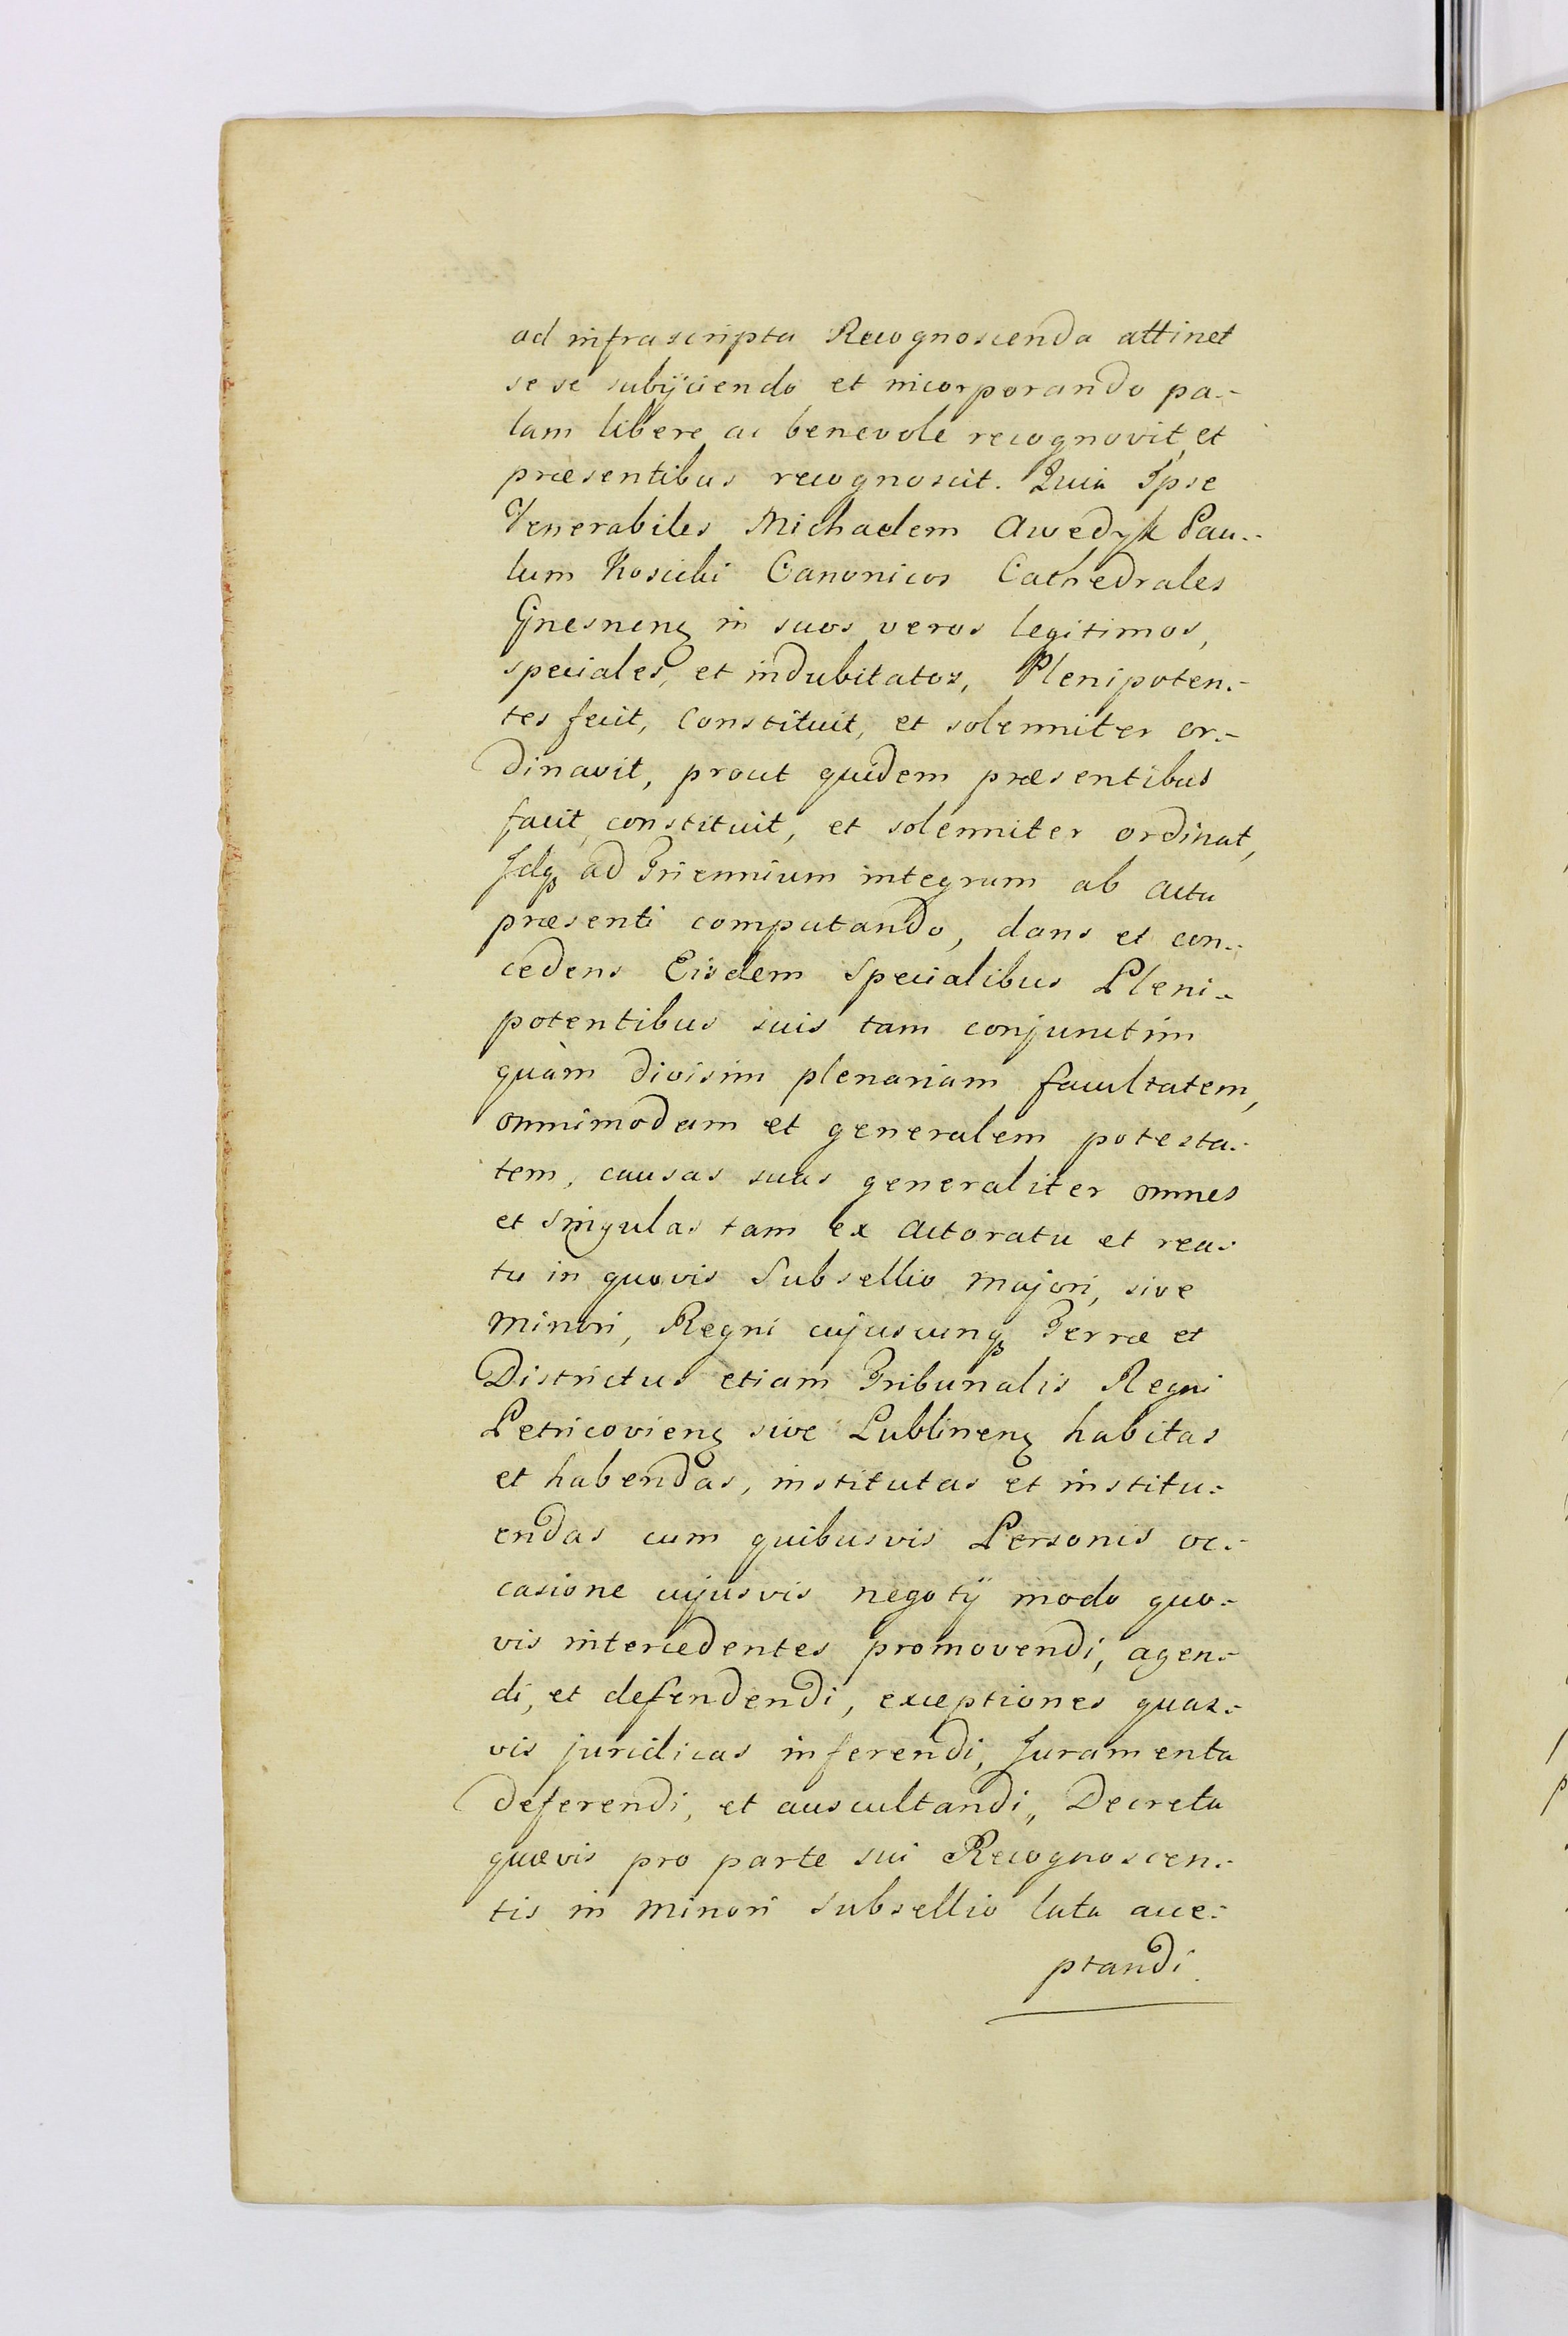 ad infrascripta Recognoscenda attinet
sese subijciendo et incorporando pa-
lam libere ac benevole recognovit, et
præsentibus recognoscit. Quia Ipse
Venerabiles Michaelem Awedyk Pau-
lum Kosicki Canonicos Cathedrales
Gnesnenẹ in suos veros legitimos,
speciales, et indubitatos, Plenipoten-
tes fecit, Constituit, et solenniter or-
dinavit, prout quidem præsentibus
facit, constituit, et solenniter ordinat,
Idqꝫ ad Triennium integrum ab actu
præsenti computando, dans et con-
cedens Eisdem Specialibus Pleni-
potentibus suis tam conjunctim
quàm divisim plenariam facultatem,
omnimodam et generalem potesta-
tem, causas suas generaliter omnes
et singulas tam ex actoratu et rea-
tu in quovis Subsellio majori, sive
minori, Regni cujuscunqꝫ Terræ et
Districtus etiam Tribunalis Regni
Petricovienꝫ sive Lublinenꝫ habitas
et habendas, institutas et institu-
endas cum quibusvis Personis oc-
casione cujusvis negotij modo quo-
vis intercedentes promovendi, agen-
di, et defendendi, exceptiones quas-
vis juridicas inferendi, Juramenta
deferendi, et auscultandi, Decreta
quævis pro parte sui Recognoscen-
tis in minori subsellio lata acce-
ptandi.